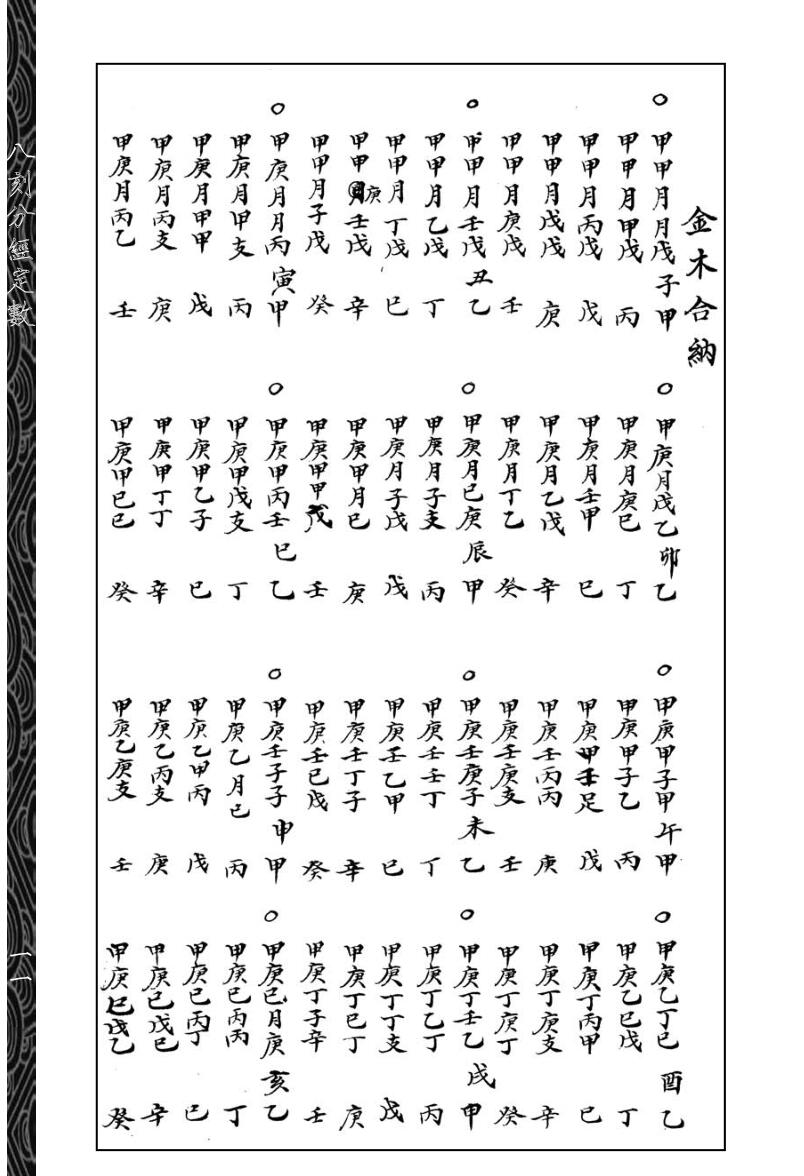 金木合納
○甲甲月月戊子 甲
甲甲月甲戊 丙
甲甲月丙戊 戊
甲甲月戊戊 庚
甲甲月庚戊 壬
○甲甲月壬戊丑 乙
甲甲月乙戊 丁
甲甲月丁戊 巳
甲甲庚壬戊 辛
甲甲月子戊 癸
○甲庚月月丙寅 甲
甲庚月甲支 丙
甲庚月甲甲 戊
甲庚月丙支 庚
甲庚月丙乙 壬
○甲庚月戊乙卯 乙
甲庚月庚巳 丁
甲庚月壬甲 巳
甲庚月乙戊 辛
甲庚月丁乙 癸
○甲庚月巳庚辰 甲
甲庚月子支 丙
甲庚月子戊 戊
甲庚甲月巳 庚
甲庚甲甲戊 壬
○甲庚甲丙壬巳 乙
甲庚甲戊支 丁
甲庚甲乙子 巳
甲庚甲丁丁 辛
甲庚甲巳巳 癸
○甲庚甲子甲午 甲
甲庚甲子乙 丙
甲庚甲壬足 戊
甲庚壬丙丙 庚
甲庚壬庚支 壬
○甲庚壬庚子未 乙
甲庚壬壬丁 丁
甲庚壬乙甲 巳
甲庚壬丁子 辛
甲庚壬巳戊 癸
○甲庚壬子子申 甲
甲庚乙月巳 丙
甲庚乙甲丙 戊
甲庚乙丙支 庚
甲庚乙庚支 壬
○甲庚乙丁巳酉 乙
甲庚乙巳戊 丁
甲庚丁丙甲 巳
甲庚丁庚支 辛
甲庚丁庚丁 癸
○甲庚丁壬乙戌 甲
甲庚丁乙丁 丙
甲庚丁丁支 戊
甲庚丁巳丁 庚
甲庚丁子辛 壬
○甲庚巳月庚亥 乙
甲庚巳丙丙 丁
甲庚巳丙丁 巳
甲庚巳戊巳 辛
甲庚巳戊乙 癸
八刻分經定數
一一